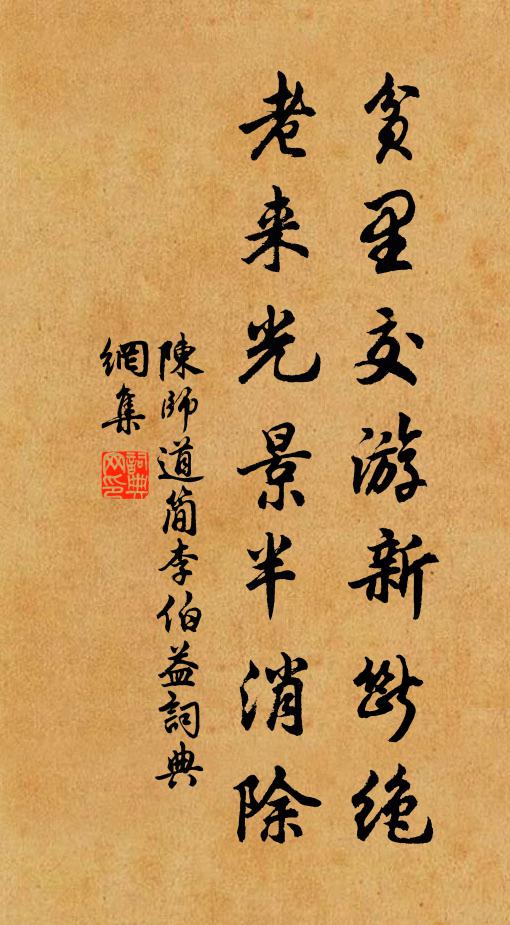 貧里交游新斷絶
老来光景半消除
陳師道簡李伯益詞典
網集
詞典
網印